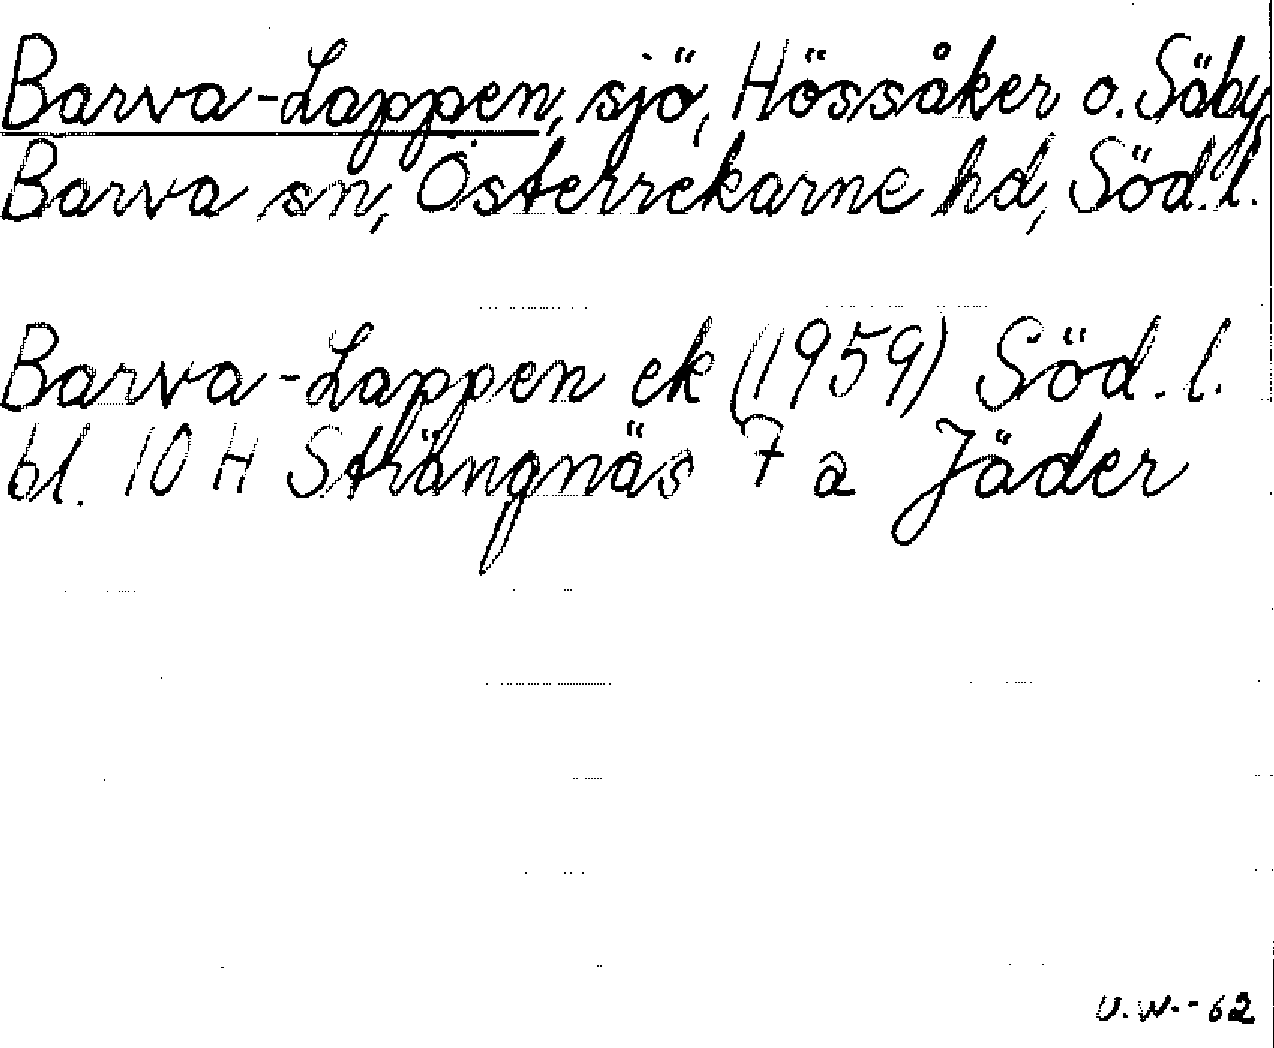 Barva-Lappen, sjö, Hössåker o. Säby,
Barva sn, Österrekarne hd, Söd.l.
Barva-Lappen ek (1959) Söd. l.
bl. 10 H Strängnäs 7 a Jäder
U.W.-62